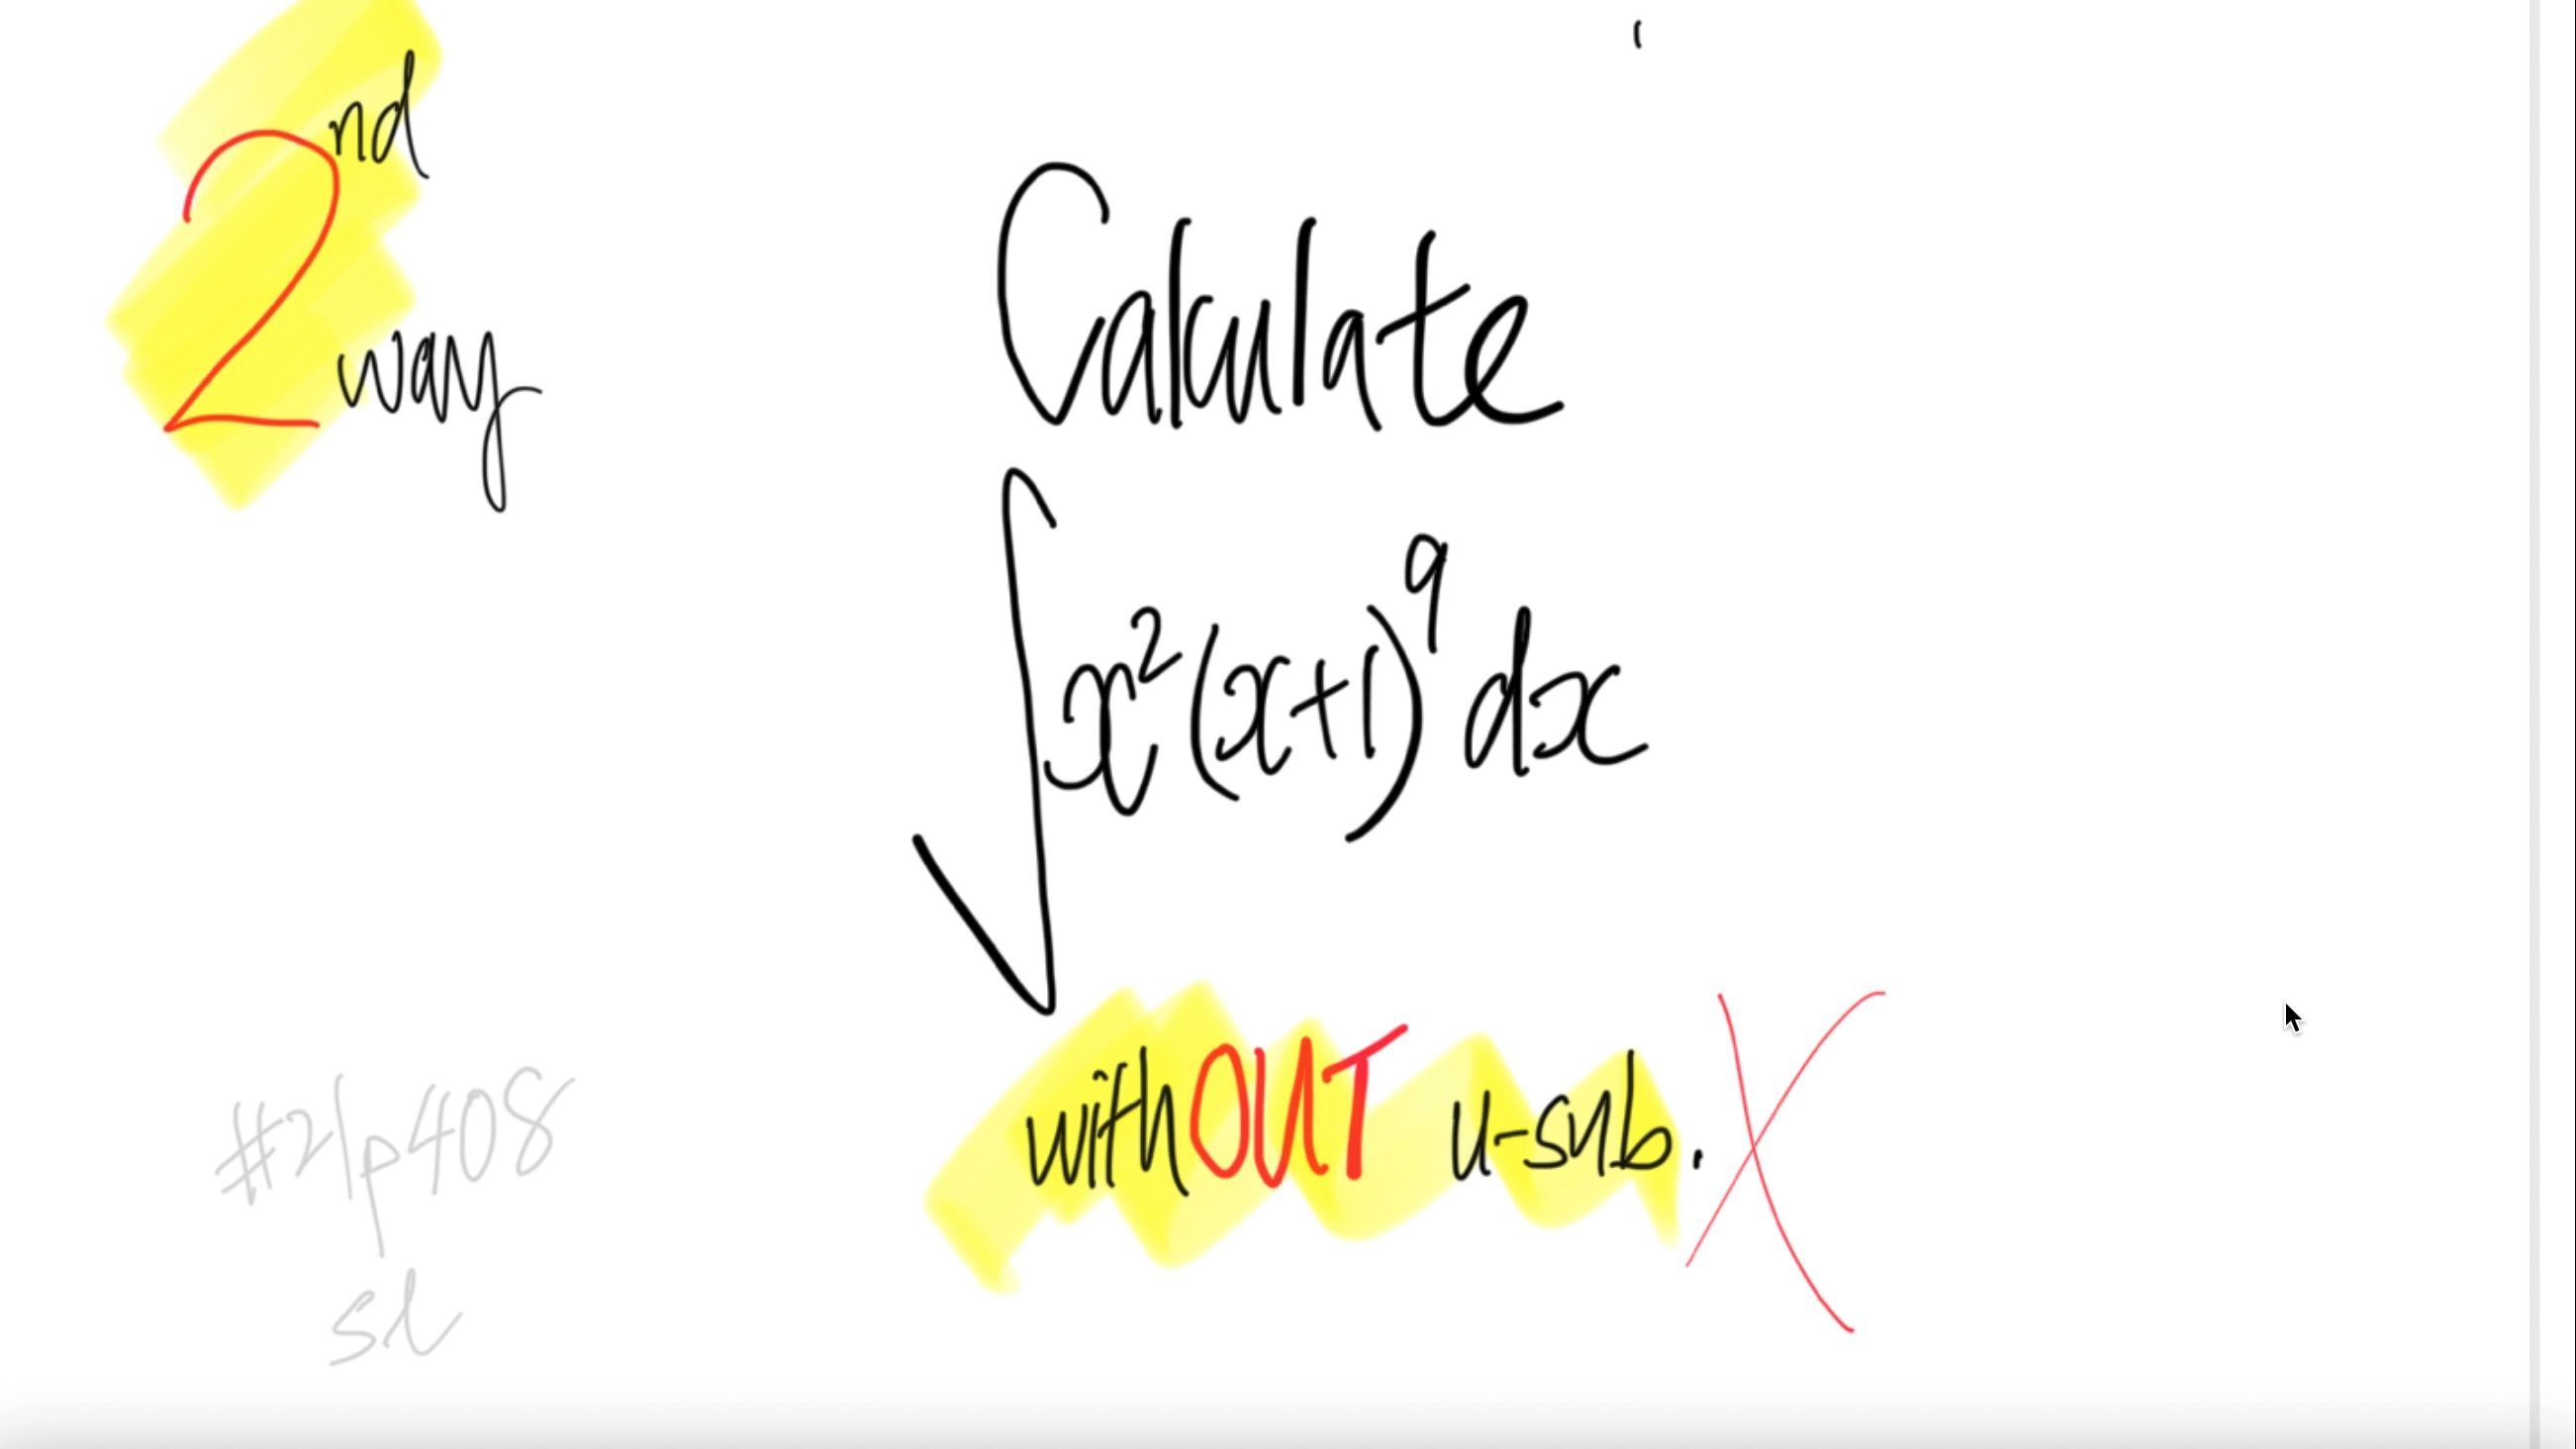 2nd way
Calculate
∫x²(x+1)⁹dx
withOUT u-sub.
#21p408
sl